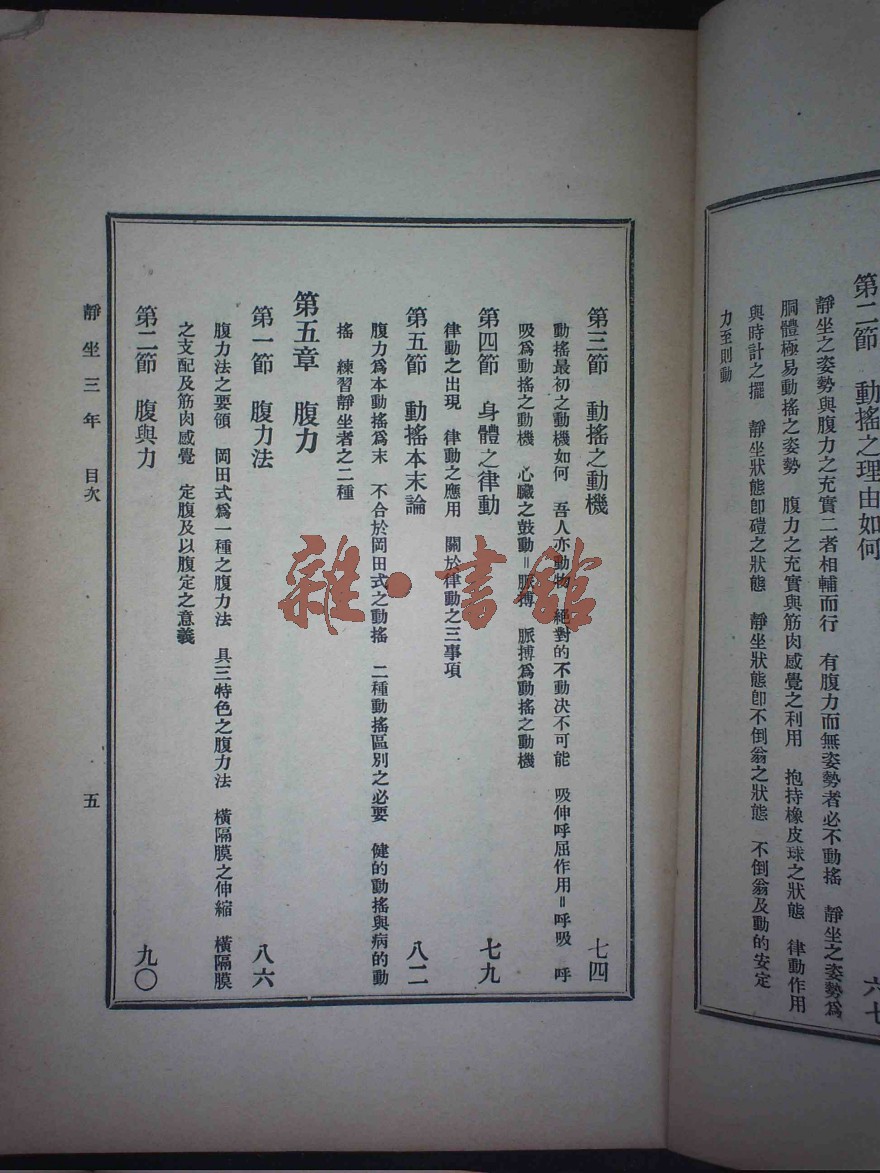 第二節　動搖之理由如何　六七
靜坐之姿勢與腹力之充實二者相輔而行　有腹力而無姿勢者必不動搖　靜坐之姿勢爲
胴體極易動搖之姿勢　腹力之充實與筋肉感覺之利用　抱持橡皮球之狀態　律動作用
與時計之擺　靜坐狀態卽磑之狀態　靜坐狀態卽不倒翁之狀態　不倒翁及動的安定
力至則動
第三節　動搖之動機　七四
動搖最初之動機如何　吾人亦動物　絕對的不動决不可能　吸伸呼屈作用＝呼吸　呼
吸爲動搖之動機　心臟之鼓動＝脈搏　脈搏爲動搖之動機
第四節　身體之律動　七九
律動之出現　律動之應用　關於律動之三事項
第五節　動搖本末論　八二
腹力爲本動搖爲末　不合於岡田式之動搖　二種動搖區別之必要　健的動搖與病的動
搖　練習靜坐者之二種
第五章　腹力
第一節　腹力法　八六
腹力法之要領　岡田式爲一種之腹力法　具三特色之腹力法　橫隔膜之伸縮　橫隔膜
之支配及筋肉感覺　定腹及以腹定之意義
第二節　腹與力　九〇
靜坐三年　目次
五
雜·書館